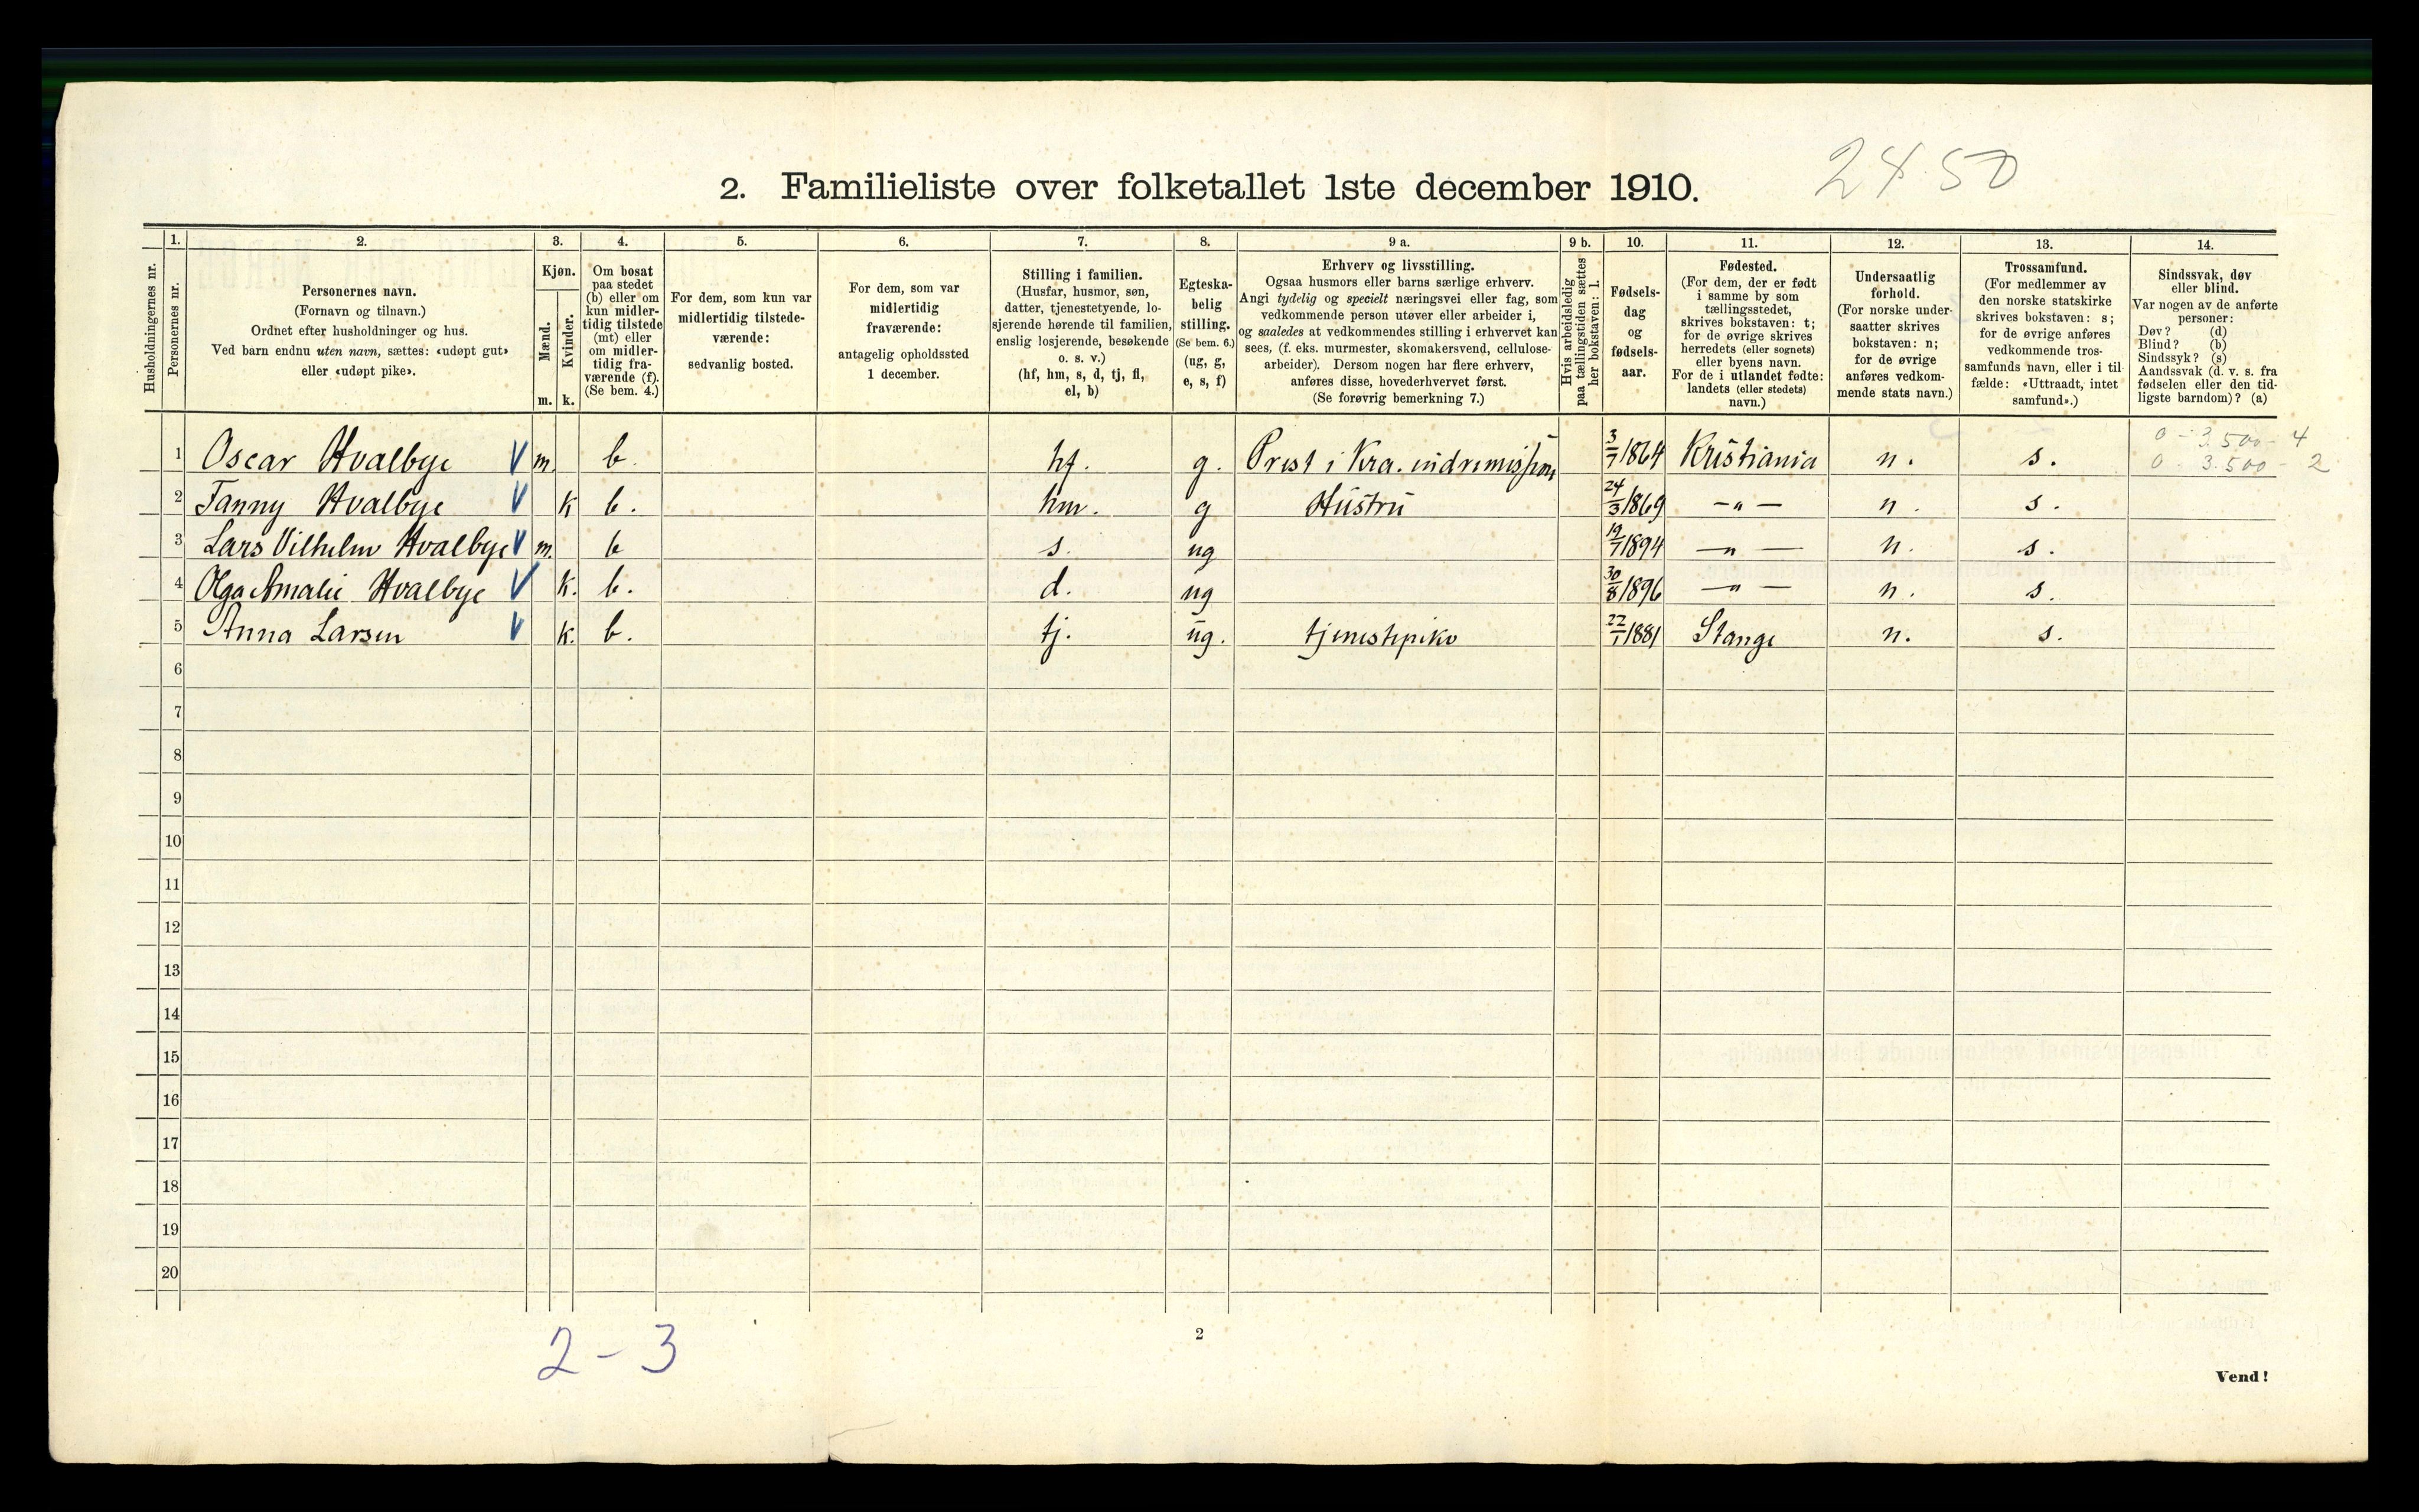 24.50
2. Familieliste over folketallet 1ste december 1910.
Husholdningernes nr.
1.
Personernes nr.
2.
Personernes navn.
(Fornavn og tilnavn.)
Ordnet efter husholdninger og hus.
Ved barn endnu uten navn, sættes: «udøpt gut»
eller «udøpt pike».
3.
Kjøn.
Mænd.
Kvinder.
m. k.
4.
Om bosat
paa stedet
(b) eller om
kun midler-
tidig tilstede
(mt) eller
om midler-
tidig fra-
værende (f).
(Se bem. 4.)
5.
For dem, som kun var
midlertidig tilstede-
værende:
sedvanlig bosted.
6.
For dem, som var
midlertidig
fraværende:
antagelig opholdssted
1 december.
7.
Stilling i familien.
(Husfar, husmor, søn,
datter, tjenestetyende, lo-
sjerende hørende til familien,
enslig losjerende, besøkende
o. s. v.)
(hf, hm, s, d, tj, fl,
el, b)
8.
Egteska-
belig
stilling.
(Se bem. 6.)
(ug, g,
e, s, f)
9 a.
Erhverv og livsstilling.
Ogsaa husmors eller barns særlige erhverv.
Angi tydelig og specielt næringsvei eller fag, som
vedkommende person utøver eller arbeider i,
og saaledes at vedkommendes stilling i erhvervet kan
sees, (f. eks. murmester, skomakersvend, cellulose-
arbeider). Dersom nogen har flere erhverv,
anføres disse, hovederhvervet først.
(Se forøvrig bemerkning 7.)
9 b.
Hvis arbeidsledig
paa tællingstiden sættes
her bokstaven: l.
10.
Fødsels-
dag
og
fødsels-
aar.
11.
Fødested.
(For dem, der er født
i samme by som
tællingsstedet,
skrives bokstaven: t;
for de øvrige skrives
herredets (eller sognets)
eller byens navn.
For de i utlandet fødte:
landets (eller stedets)
navn.)
12.
Undersaatlig
forhold.
(For norske under-
saatter skrives
bokstaven: n;
for de øvrige
anføres vedkom-
mende stats navn.)
13.
Trossamfund.
(For medlemmer av
den norske statskirke
skrives bokstaven: s;
for de øvrige anføres
vedkommende tros-
samfunds navn, eller i til-
fælde: «Uttraadt, intet
samfund».)
14.
Sindssvak, døv
eller blind.
Var nogen av de anførte
personer:
Døv? (d)
Blind? (b)
Sindssyk? (s)
Aandssvak (d. v. s. fra
fødselen eller den tid-
ligste barndom)? (a)
1 Oscar Hvalbye V m. b. hf. g. Prest i Kra. indremission 3/7 1864 Kristiania n. s. 0 - 3.500 - 4
0 - 3.500 - 2
2 Fanny Hvalbye V k b. hm. g Hustru 24/3 1869 — " — n. s.
3 Lars Vilhelm Hvalbye V m. b s. ug 19/7 1894 — " — n. s.
4 Olga Amalie Hvalbye V k. b. d. ug 30/8 1896 — " — n. s.
5 Anna Larsen V k. b. tj. ug. tjenestepike 22/1 1881 Stange n. s.
6
7
8
9
10
11
12
13
14
15
16
17
18
19
20
2 - 3
2
Vend!